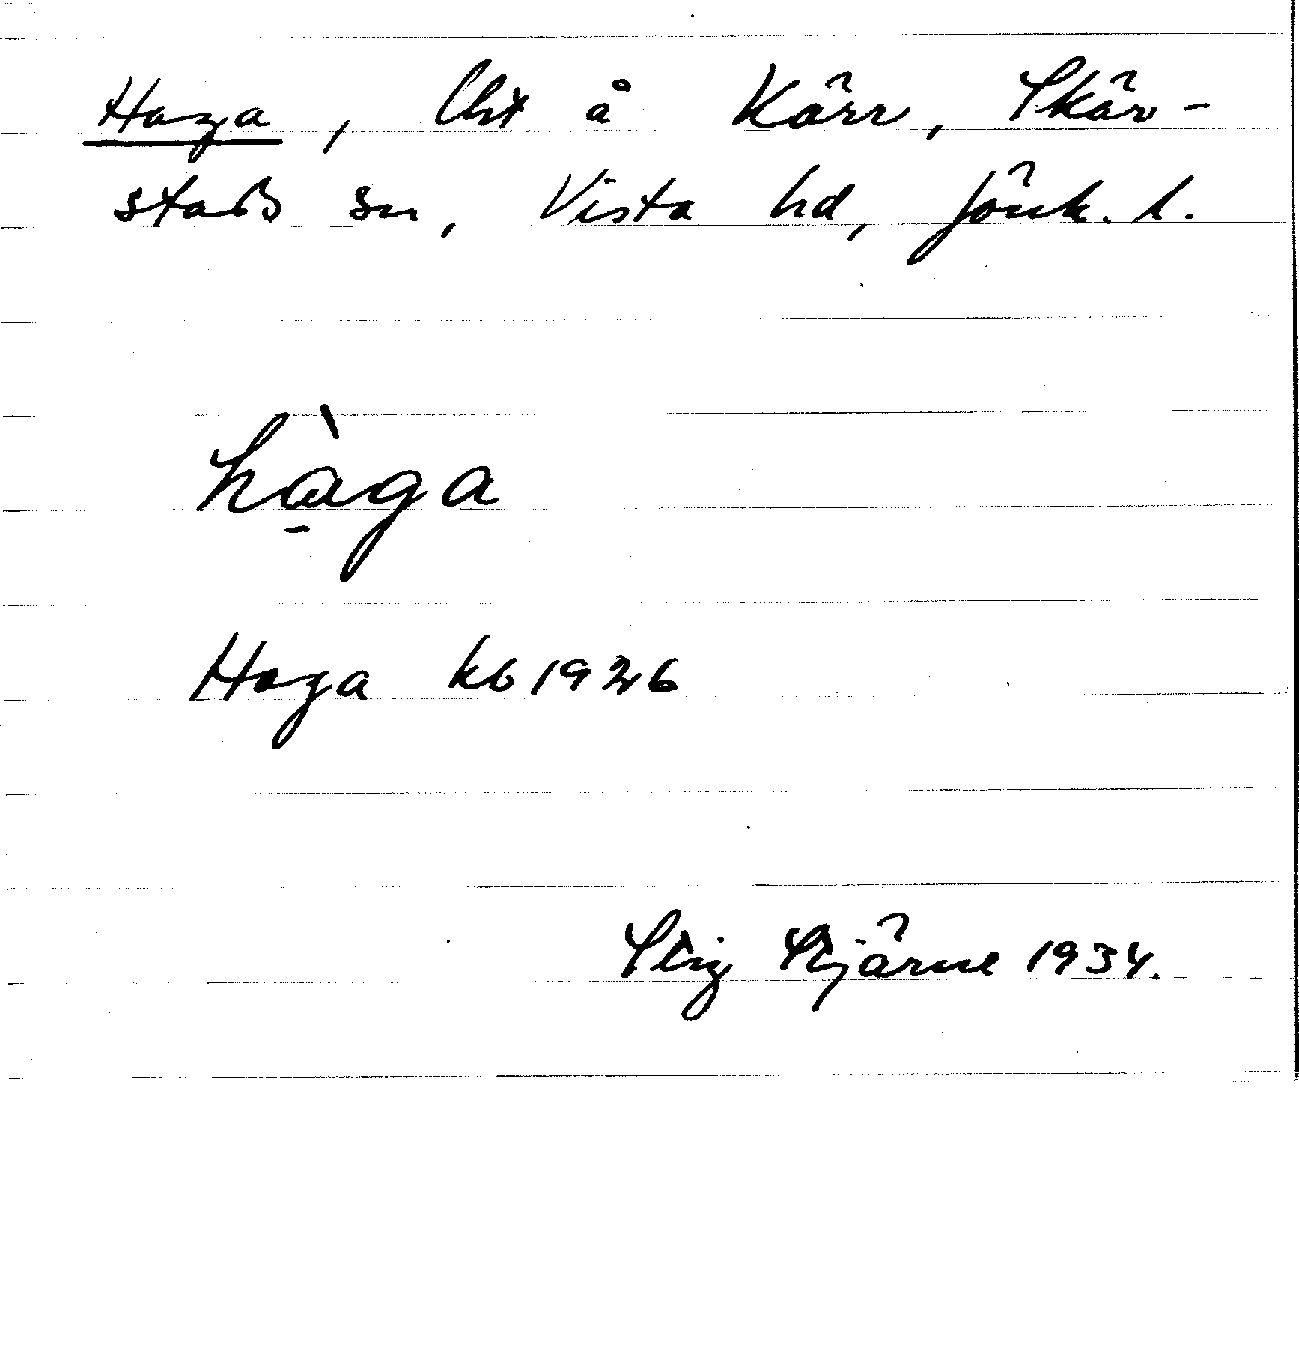 Haga, lht å Kärr, Skär-
stads sn, Vista hd, Jönk. l.
hàga
Haga kb 1926
Stig Stjärne 1934.